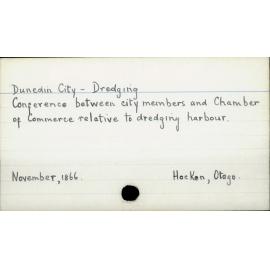 Dunedin City - Dredging
Conference between city members and Chamber
of Commerce relative to dredging harbour.
November, 1866.
Hocken, Otago.